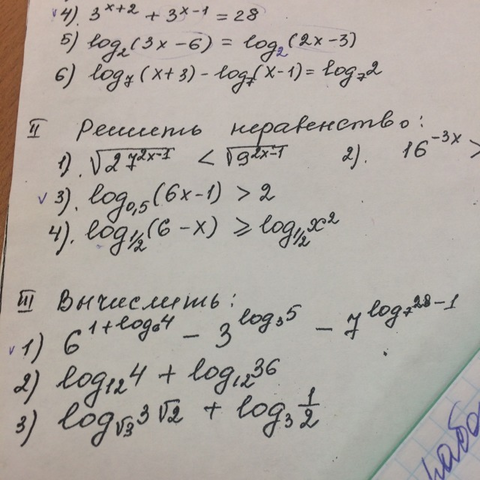 4). 3^{x+2} + 3^{x-1} = 28
5) log₂(3x-6) = log₂(2x-3)
6) log₇(x+3) - log₇(x-1) = log₇2
II Решить неравенство:
1). √(27^{2x-1}) < √(9^{2x-1}) 2). 16^{-3x} >
3). log₀,₅(6x-1) > 2
4). log_{1/2}(6-x) ≥ log_{1/2}x²
III Вычислить:
1) 6^{1+log₆4} - 3^{log₃5} - 7^{log₇28-1}
2) log₁₂4 + log₁₂36
3) log_{√3}3√2 + log₃ 1/2